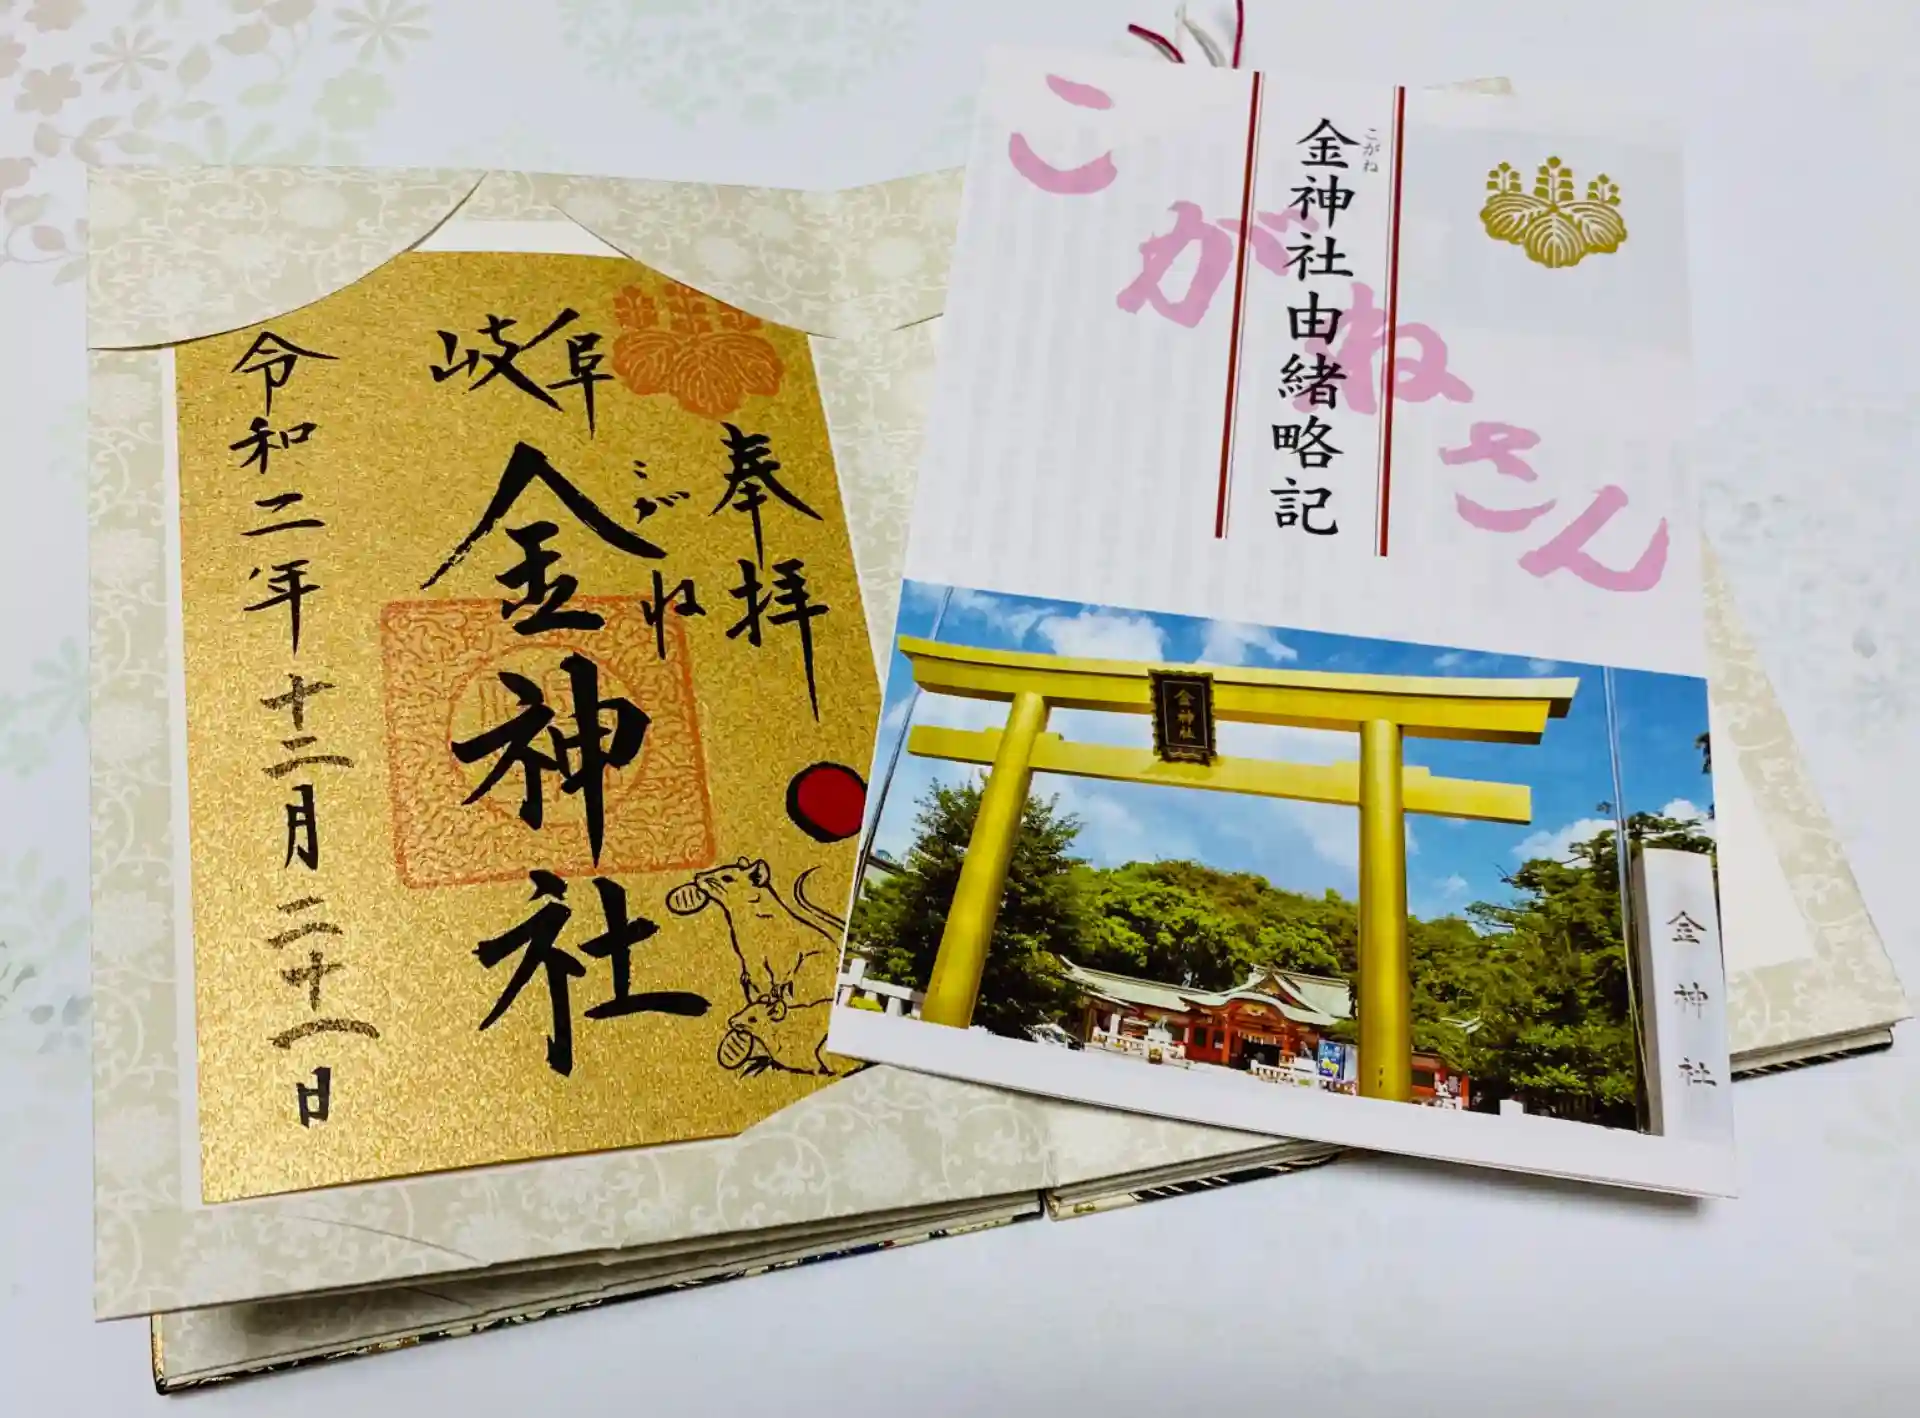 岐阜
奉拝
こがね
金神社
令和二年十二月二十一日
こがねさん
こがね
金神社由緒略記
金神社
金神社